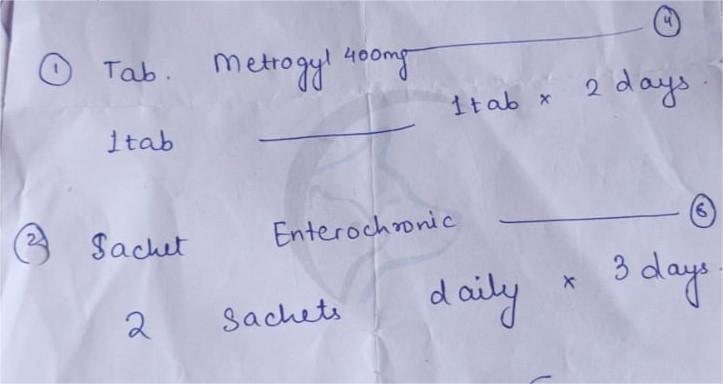 ① Tab. Metrogyl 400mg ④
1tab 1tab × 2 days.
② Sachet Enterochronic ⑥
2 Sachets daily × 3 days.